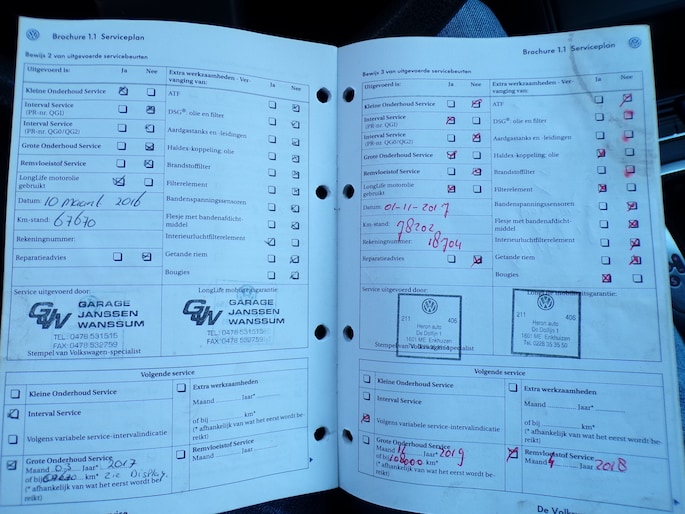 Brochure 1.1 Serviceplan
Bewijs 2 van uitgevoerde servicebeurten
Uitgevoerd is: Ja Nee
Kleine Onderhoud Service
Interval Service
(PR-nr. QG1)
Interval Service
(PR-nr. QG0/QG2)
Grote Onderhoud Service
Remvloeistof Service
LongLife motorolie
gebruikt
Datum: 10 maart 2016
Km-stand: 67670
Rekeningnummer:
Reparatieadvies
Extra werkzaamheden - Ver-
vanging van: Ja Nee
ATF
DSG®: olie en filter
Aardgastanks en -leidingen
Haldex-koppeling: olie
Brandstoffilter
Filterelement
Bandenspanningssensoren
Flesje met bandenafdicht-
middel
Interieurluchtfilterelement
Getande riem
Bougies
Service uitgevoerd door:
LongLife mobiliteitsgarantie:
GJW GARAGE
JANSSEN
WANSSUM
TEL.: 0478 531515
FAX: 0478 532759
GJW GARAGE
JANSSEN
WANSSUM
TEL.: 0478 531515
FAX: 0478 532759
Stempel van Volkswagen-specialist
Volgende service
Kleine Onderhoud Service
Interval Service
Volgens variabele service-intervalindicatie
Grote Onderhoud Service
Maand Jaar* 2017
of bij km* zie Display
(* afhankelijk van wat het eerst wordt be-
reikt)
Extra werkzaamheden
Maand Jaar*
of bij km*
(* afhankelijk van wat het eerst wordt be-
reikt)
Remvloeistof Service
Maand Jaar
Brochure 1.1 Serviceplan
Bewijs 3 van uitgevoerde servicebeurten
Uitgevoerd is: Ja Nee
Kleine Onderhoud Service
Interval Service
(PR-nr. QG1)
Interval Service
(PR-nr. QG0/QG2)
Grote Onderhoud Service
Remvloeistof Service
LongLife motorolie
gebruikt
Datum: 01-11-2017
Km-stand: 78202
Rekeningnummer: 18704
Reparatieadvies
Extra werkzaamheden - Ver-
vanging van: Ja Nee
ATF
DSG®: olie en filter
Aardgastanks en -leidingen
Haldex-koppeling: olie
Brandstoffilter
Filterelement
Bandenspanningssensoren
Flesje met bandenafdicht-
middel
Interieurluchtfilterelement
Getande riem
Bougies
Service uitgevoerd door:
LongLife mobiliteitsgarantie:
211 406
Heron auto
De Dolfijn 1
1601 ME Enkhuizen
211 406
Heron auto
De Dolfijn 1
1601 ME Enkhuizen
Tel. 0228 35 35 50
Stempel van Volkswagen-specialist
Volgende service
Kleine Onderhoud Service
Interval Service
Volgens variabele service-intervalindicatie
Grote Onderhoud Service
Maand Jaar* 2019
of bij km*
(* afhankelijk van wat het eerst wordt be-
reikt)
Extra werkzaamheden
Maand Jaar*
of bij km*
(* afhankelijk van wat het eerst wordt be-
reikt)
Remvloeistof Service
Maand 4 Jaar 2018
De Volks